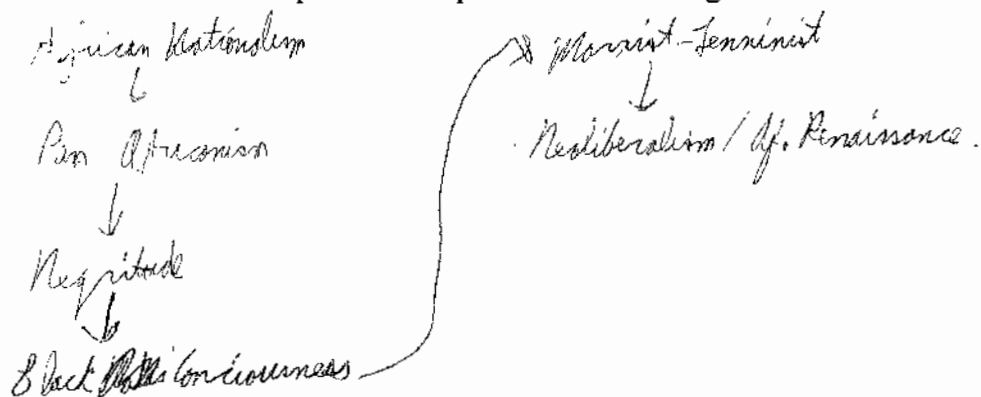 African Nationalism
Pan Africanism
Negritude
Black Conciousness
Marxist-Lenninist
Neoliberalism / Af. Renaissance.